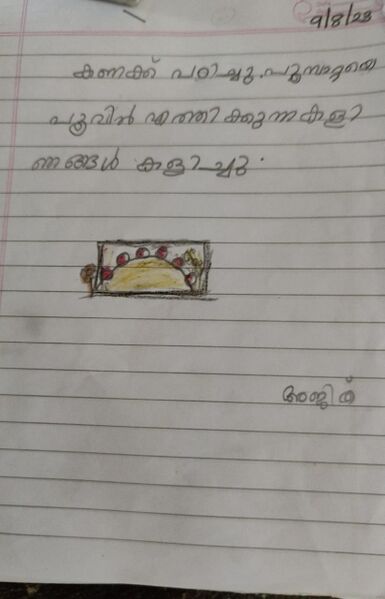 9/8/23
കണക്ക് പഠിച്ചു. പൂമ്പാറ്റയെ
പൂവിൽ എത്തിക്കുന്ന കളി
ഞങ്ങൾ കളിച്ചു.
അജിത്